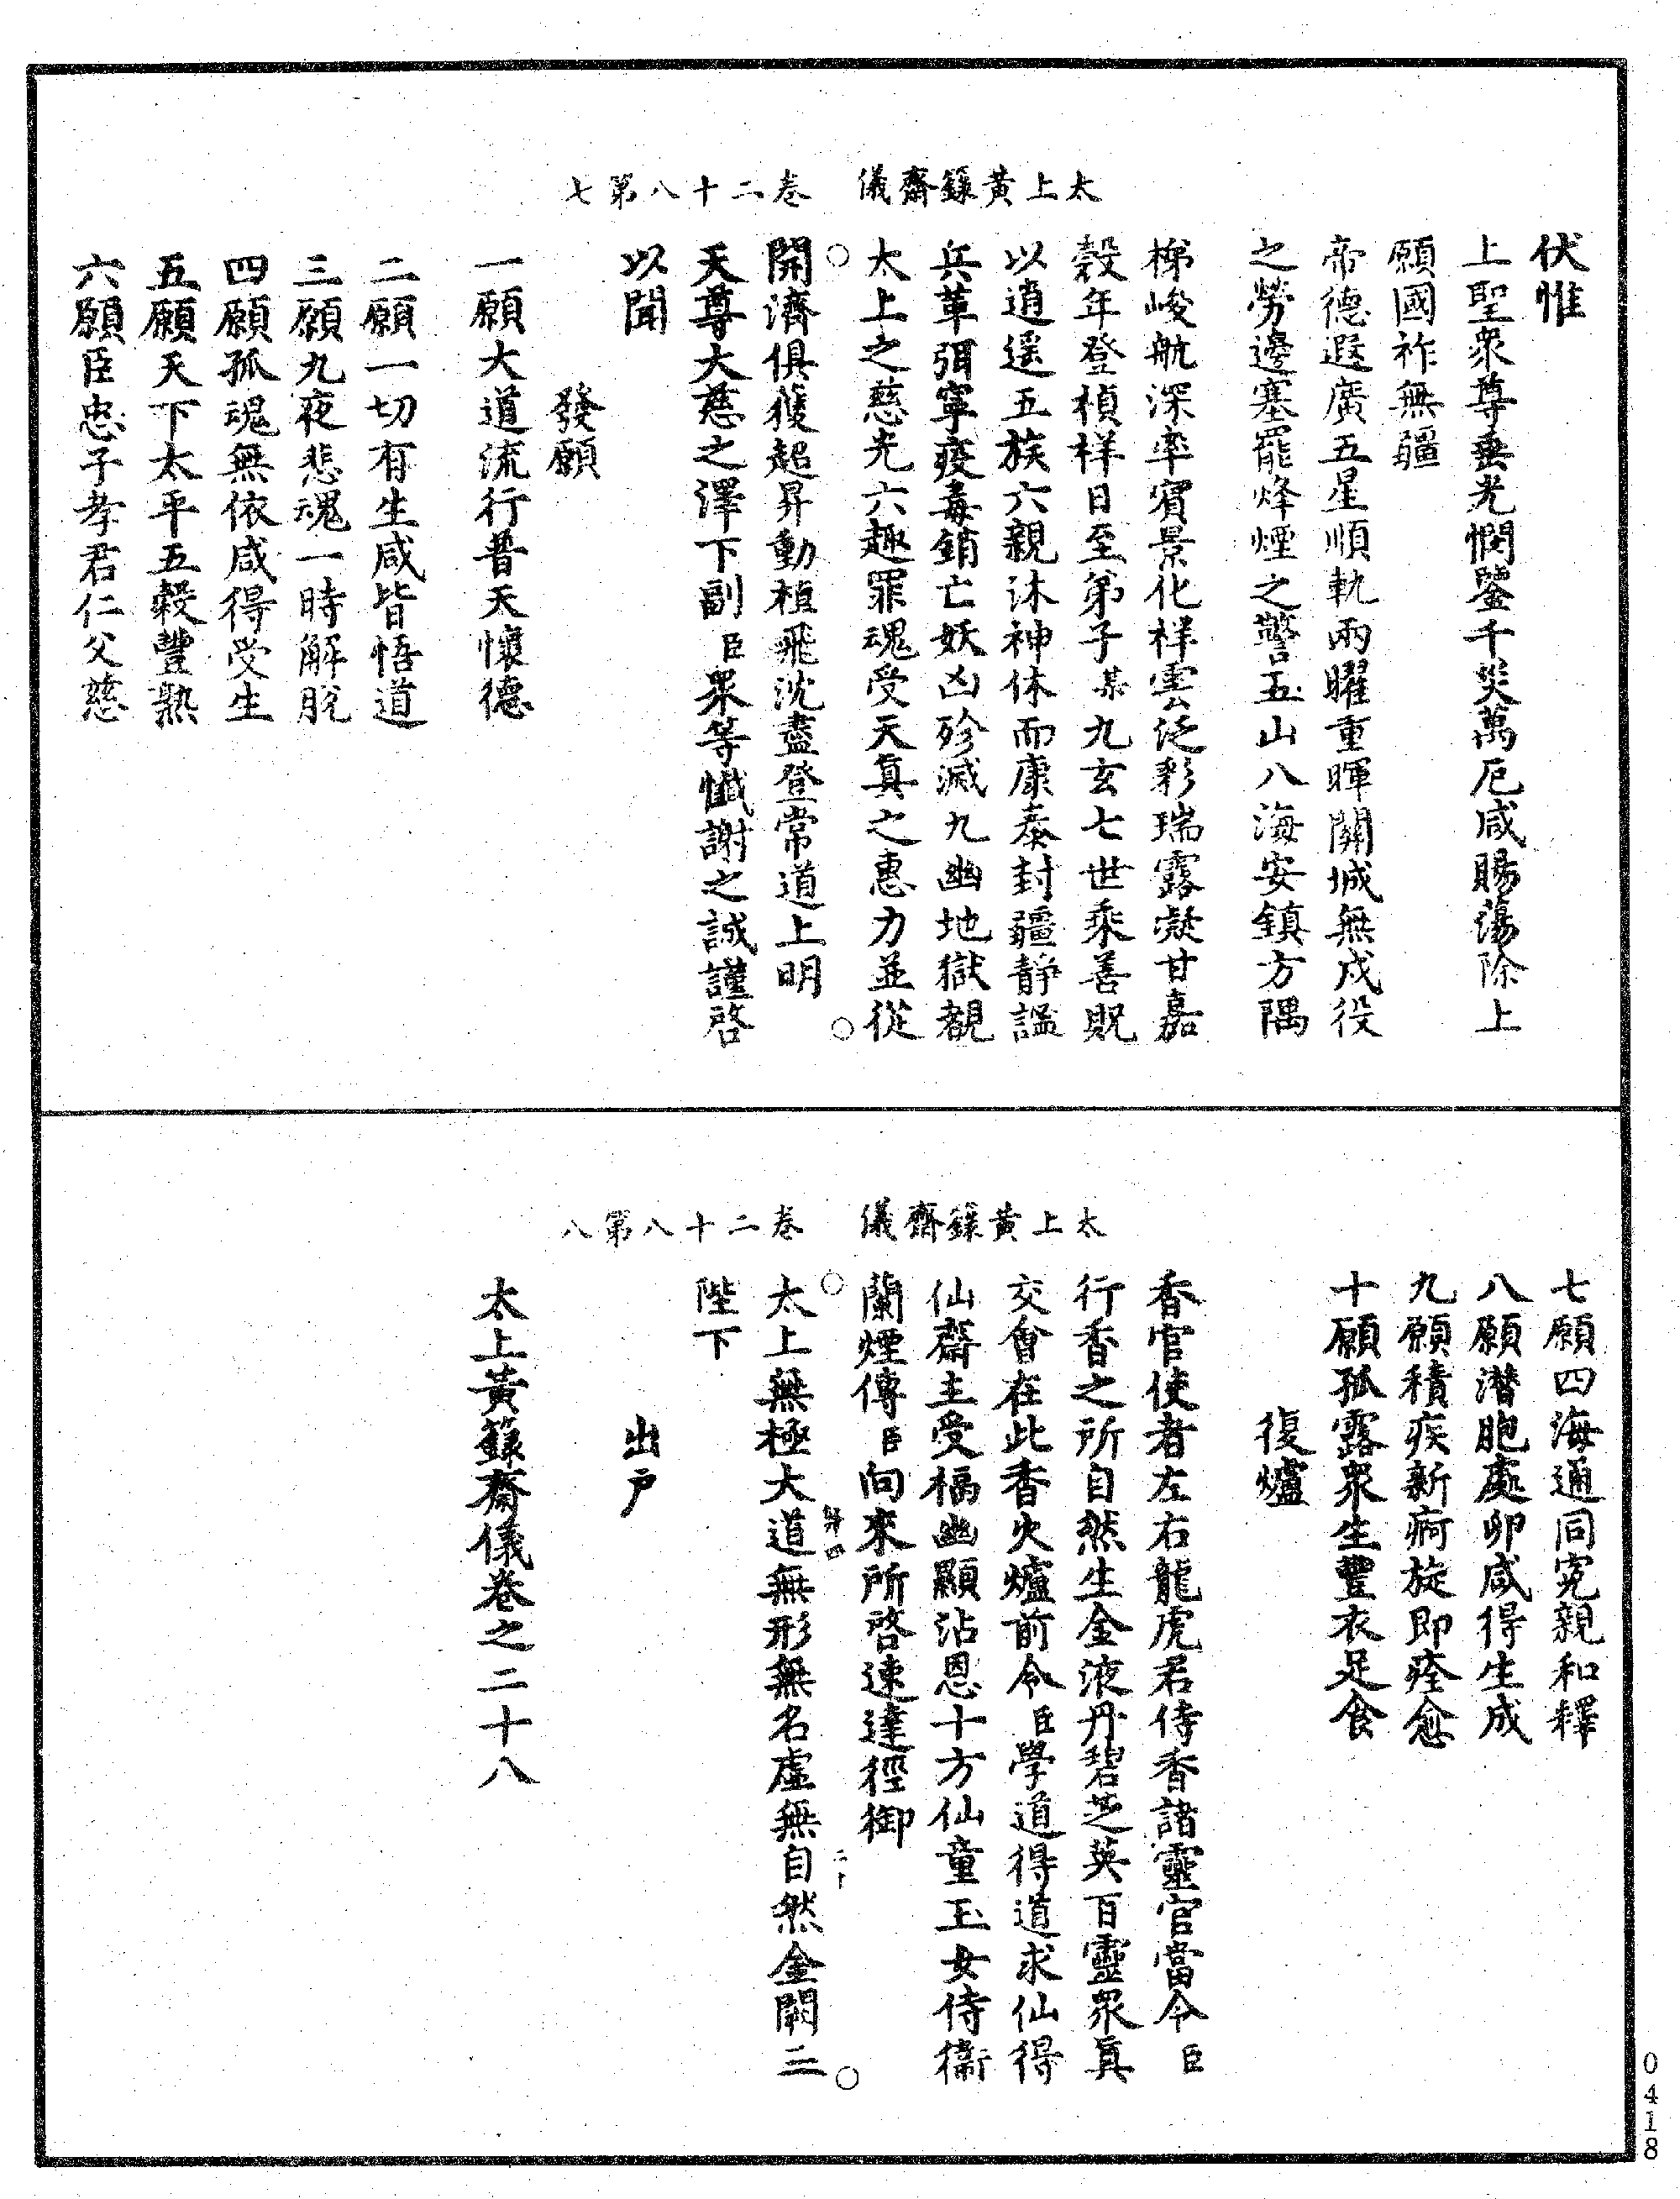 太上黃籙齋儀　卷二十八第七
伏惟
上聖衆尊垂光憫鑒千災萬厄咸賜蕩除上
願國祚無疆
帝德遐廣五星順軌兩曜重暉關城無戍役
之勞邊塞罷烽煙之警五山八海安鎮方隅
梯峻航深率賓景化祥雲泛彩瑞露凝甘嘉
穀年登楨祥日至弟子某九玄七世乘善貺
以逍遥五族六親沐神休而康泰封疆静謐
兵革弭寧疫毒銷亡妖凶殄滅九幽地獄覩
太上之慈光六趣罪魂受天真之惠力並從
開濟俱獲超昇動植飛沈盡登常道上明
天尊大慈之澤下副臣衆等懺謝之誠謹啓
以聞
發願
一願大道流行普天懷德
二願一切有生咸皆悟道
三願九夜悲魂一時解脫
四願孤魂無依咸得受生
五願天下太平五穀豐熟
六願臣忠子孝君仁父慈
太上黃籙齋儀　卷二十八第八
七願四海通同寃親和釋
八願潜胞處卵咸得生成
九願積疾新痾旋即痊愈
十願孤露衆生豐衣足食
復爐
香官使者左右龍虎君侍香諸靈官當令臣
行香之所自然生金液丹碧芝英百靈衆真
交會在此香火爐前令臣學道得道求仙得
仙齋主受福幽顯沾恩十方仙童玉女侍衞
蘭煙傳臣向來所啓速達徑御
太上無極大道無形無名虛無自然金闕三
陛下
出户
太上黃籙齋儀卷之二十八
二十
0418